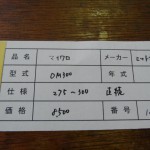 品名 マイクロ メーカー ミツトヨ
型式 OM300 年式
仕様 275~300 正規
価格 8500 番号